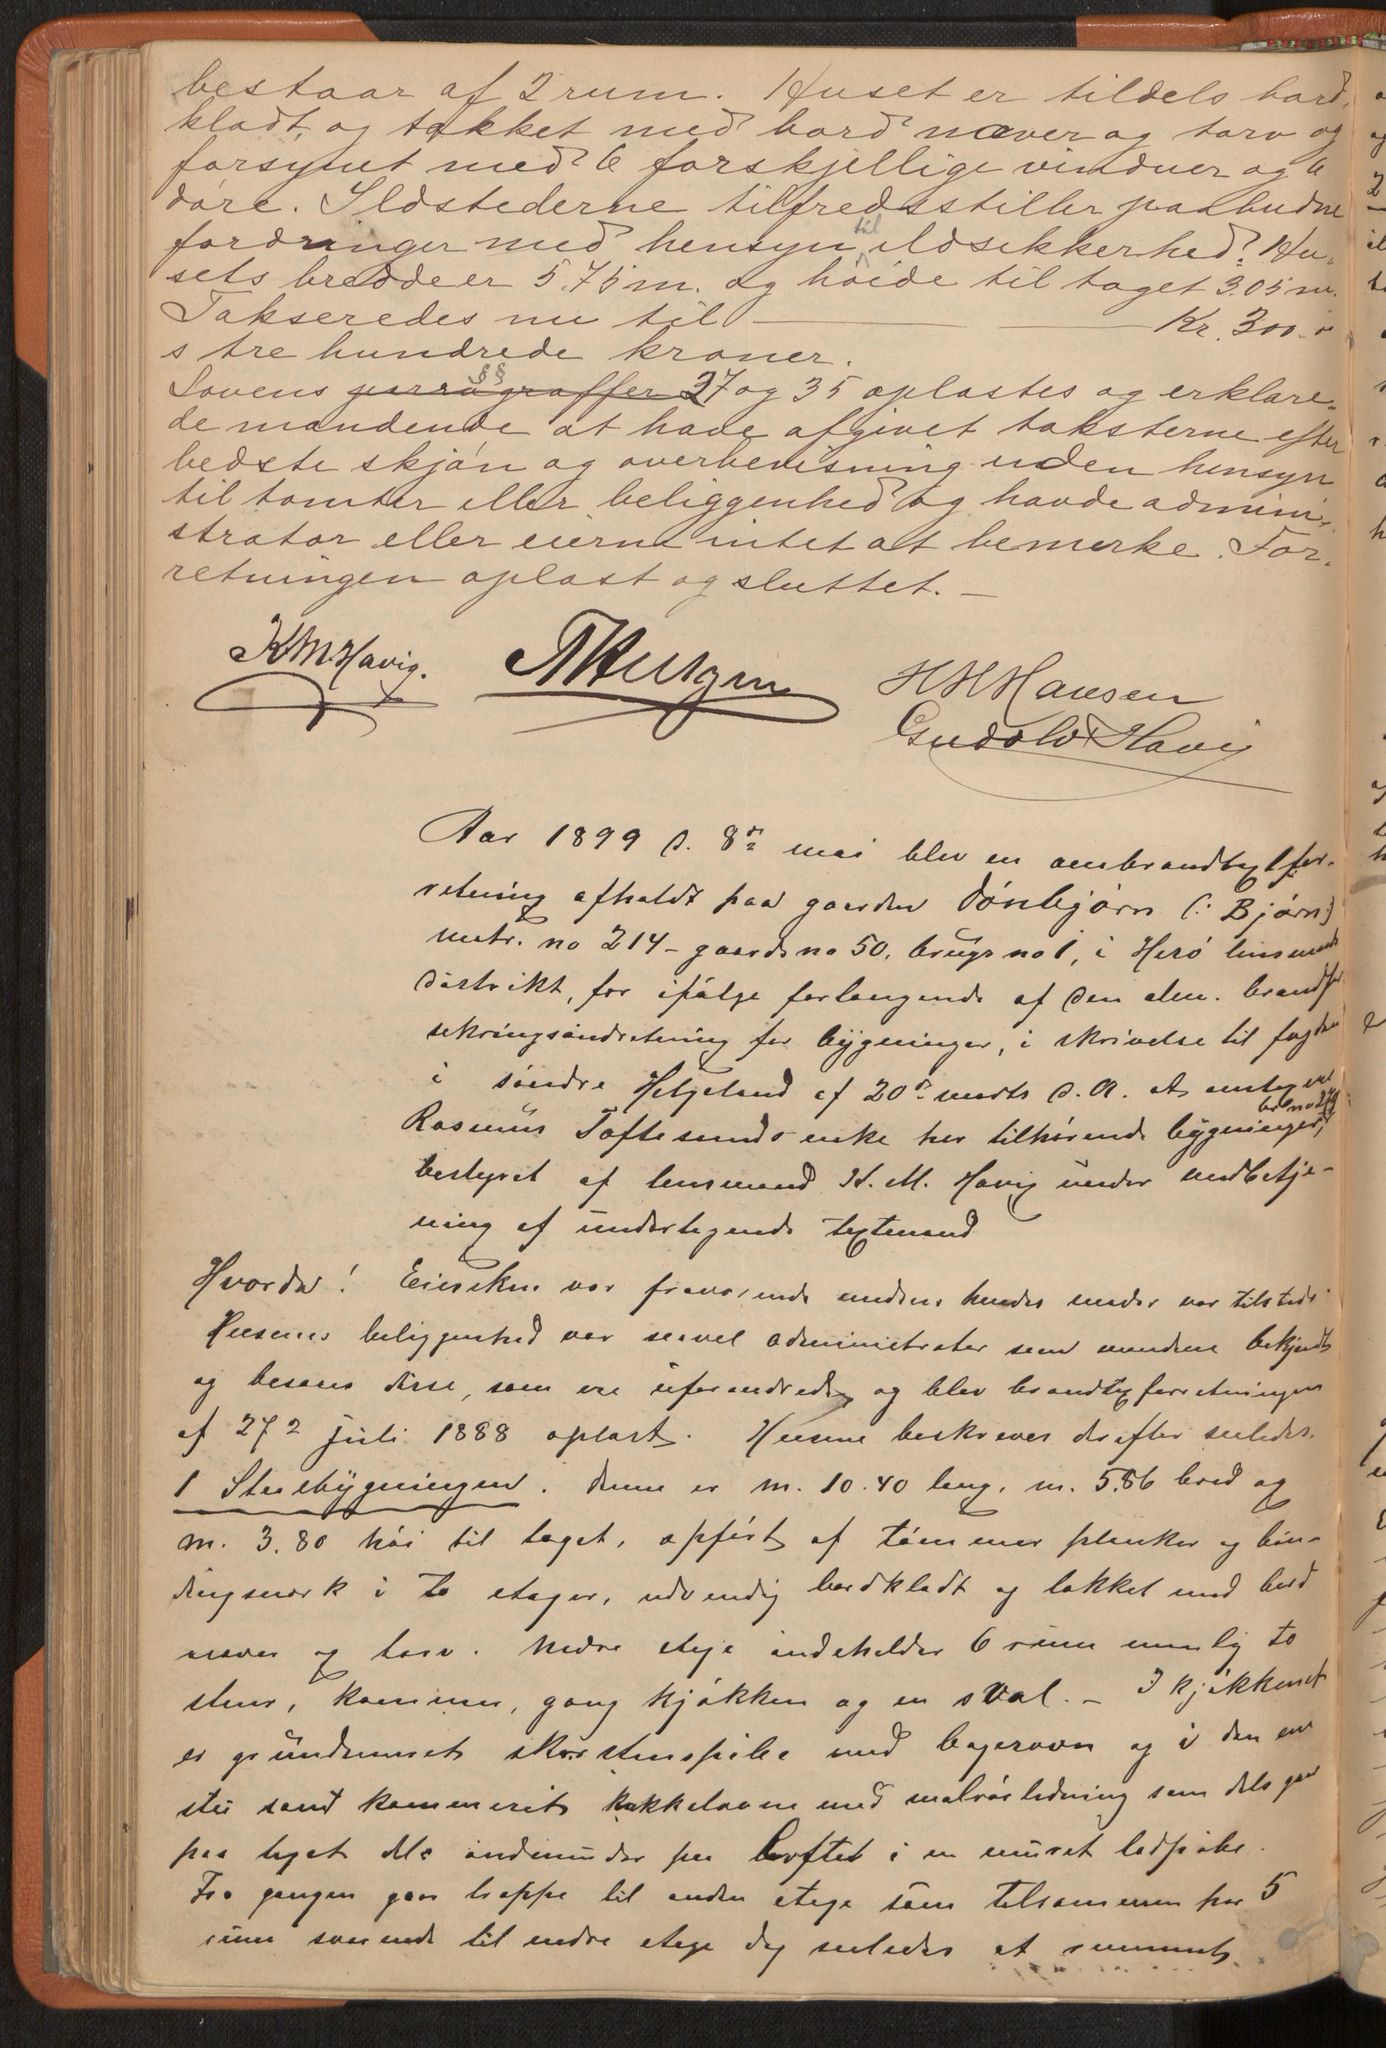 bestaar af 2 rum. Huset er tildels bord,
klædt, og tækket med bord næver og torv og
forsynet med 6 forskjellige vinduer og 6
døre. Ildstederne tilfredsstiller paabudne
fordringer med hensyn til ildsikkerhed. Hu,
sets bredde er 5.75 m. og høide til taget 3.05 m.
Takseredes nu til — — Kr. 300.0
s tre hundrede kroner.
Lovens parragraffer §§ 27 og 35 oplæstes og erklære,
de mændende at have afgivet taksterne efter
bedste skjøn og overbevisning uden hensyn
til tomter eller beliggenhed og havde admini,
strator eller eierne intet at bemerke. For,
retningen oplæst og sluttet. —
K M Havig. H H Hansen
Gudolv Havig
Aar 1899 d. 8de mai blev en ombrandtaxtfor,
retning afholdt paa gaarden Dønbjørn (: Bjørn:)
matr. no 214 - gaards no 50, brugs no 1, i Herø lensmands
distrikt, for ifølge forlangende af den alm. brandfor
sikringsindretning for bygninger, i skrivelse til fogden
i søndre Helgeland af 20de marts d. A. at omtaxere
Rasmus Toftesunds enke her tilhørende bygninger,
bestyret af lensmand K. M. Havig under medbetje-
ning af undertegnede taxtmænd
Hvorda! Eiersken var fraværende medens hendes moder var tilstede.
Husenes beliggenhed var saavel administrator som mændene bekjendt
og besaaes disse, som ere uforandrede, og blev brandtaxtforretningen
af 27de juli 1888 oplæst. Husene beskrives derefter saaledes.
1 Stuebygningen. denne er m. 10.40 lang, m. 5.86 bred og
m. 3.80 høi til taget, opført af tømmer planker og bin-
dingsværk i to etager, udvendig bordklædt og tækket med bord
næver og torv. Nedre etage indeholder 6 rum nemlig to
stuer, kammer, gang kjøkken og en sval. - I kjøkkenet
er grundmuret skorstenspibe med bagerovn og i den ene
stue samt kammeret kakkelovne med malrørledning som dels gaar
paa taget dels indmunder paa loftet i en muret ladpibe.
Fra gangen gaar trappe til anden etage som tilsammen har 5
rum svarende til nedre etage dog saaledes at rummet